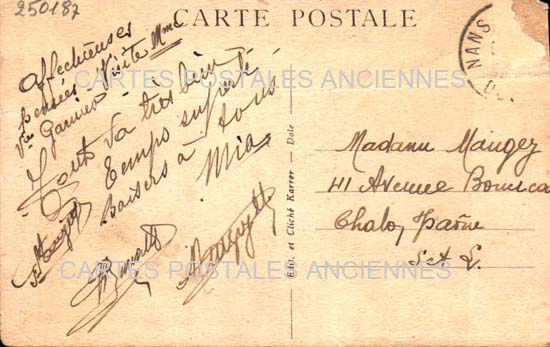 250187
CARTE POSTALE
Affectueuses
pensées Visite Mme
Vve Garnier
Tout va très bien
Temps superbe
Baisers à tous
Mia
NANS
Edit. et Cliché Karrer — Dole
Madame Maugey
41 Avenue
Chalon Saône
S. et L.
CARTES POSTALES ANCIENNES
CARTES POSTALES ANCIENNES